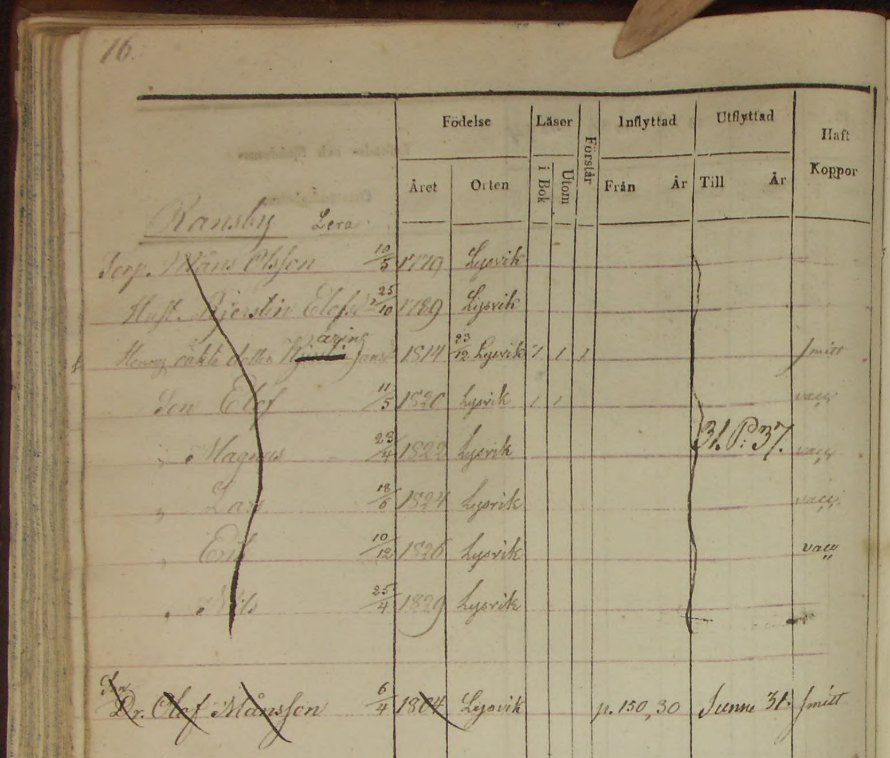 76.
Födelse Läser Förstår Inflyttad Utflyttad Haft Koppor
Året Orten i Bok Utom Från År Till År
Ransby Lera
Torp. Måns Olsson 10/5 1779 Lysvik
Hust. Kjerstin Elofsd 25/10 1789 Lysvik
äkta dotter Karin 1814 23/12 Lysvik 1 1 1 smitt
Son Elof 11/5 1820 Lysvik 1 1 vacc
" Magnus 23/4 1822 Lysvik 31. P. 37. vacc
" Lars 18/6 1824 Lysvik vacc
" Erik 10/12 1826 Lysvik vacc
" Nils 25/4 1829 Lysvik
Son
Dr. Olof Månsson 6/4 1804 Lysvik p. 150, 30 Sunne 31. smitt